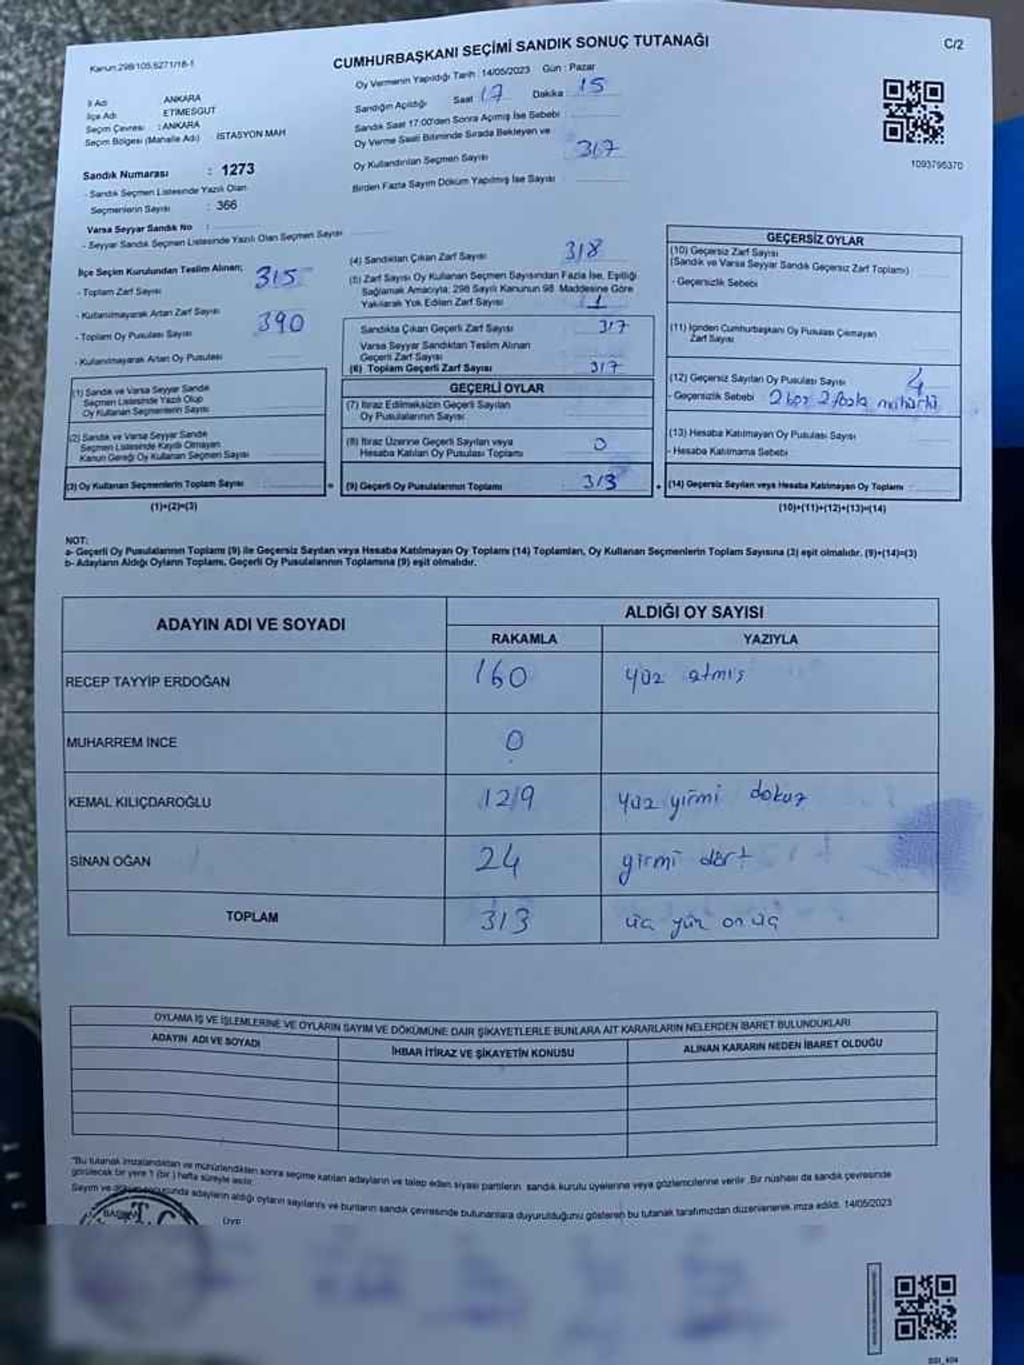 Kanun:298/105.6271/18-1
CUMHURBAŞKANI SEÇİMİ SANDIK SONUÇ TUTANAĞI
C/2
Oy Vermenin Yapıldığı Tarih : 14/05/2023 Gün : Pazar
İl Adı ANKARA
İlçe Adı ETİMESGUT
Seçim Çevresi : ANKARA
Seçim Bölgesi (Mahalle Adı) İSTASYON MAH
Sandık Numarası : 1273
- Sandık Seçmen Listesinde Yazılı Olan
Seçmenlerin Sayısı : 366
Varsa Seyyar Sandık No :
- Seyyar Sandık Seçmen Listesinde Yazılı Olan Seçmen Sayısı
Sandığın Açıldığı Saat 17 Dakika 15
Sandık Saat 17:00'den Sonra Açımış İse Sebebi :
Oy Verme Saati Bitiminde Sırada Bekleyen ve
Oy Kullandırılan Seçmen Sayısı 317
Birden Fazla Sayım Döküm Yapılmış İse Sayısı
1093795370
İlçe Seçim Kurulundan Teslim Alınan;
- Toplam Zarf Sayısı 315
- Kullanılmayarak Artan Zarf Sayısı
- Toplam Oy Pusulası Sayısı 390
- Kullanılmayarak Artan Oy Pusulası
(1) Sandık ve Varsa Seyyar Sandık
Seçmen Listesinde Yazılı Olup
Oy Kullanan Seçmenlerin Sayısı
(2) Sandık ve Varsa Seyyar Sandık
Seçmen Listesinde Kayıtlı Olmayan
Kanun Gereği Oy Kullanan Seçmen Sayısı
(3) Oy Kullanan Seçmenlerin Toplam Sayısı =
(1)+(2)=(3)
(4) Sandıktan Çıkan Zarf Sayısı 318
(5) Zarf Sayısı Oy Kullanan Seçmen Sayısından Fazla İse, Eşitliği
Sağlamak Amacıyla; 298 Sayılı Kanunun 98. Maddesine Göre
Yakılarak Yok Edilen Zarf Sayısı 1
Sandıkta Çıkan Geçerli Zarf Sayısı 317
Varsa Seyyar Sandıktan Teslim Alınan
Geçerli Zarf Sayısı
(6) Toplam Geçerli Zarf Sayısı 317
GEÇERLİ OYLAR
(7) İtiraz Edilmeksizin Geçerli Sayılan
Oy Pusulalarının Sayısı
(8) İtiraz Üzerine Geçerli Sayılan veya
Hesaba Katılan Oy Pusulası Toplamı 0
(9) Geçerli Oy Pusulalarının Toplamı 313 +
GEÇERSİZ OYLAR
(10) Geçersiz Zarf Sayısı
(Sandık ve Varsa Seyyar Sandık Geçersiz Zarf Toplamı)
- Geçersizlik Sebebi
(11) İçinden Cumhurbaşkanı Oy Pusulası Çıkmayan
Zarf Sayısı
(12) Geçersiz Sayılan Oy Pusulası Sayısı 4
- Geçersizlik Sebebi 2 boş 2 fazla mühürlü
(13) Hesaba Katılmayan Oy Pusulası Sayısı
- Hesaba Katılmama Sebebi
(14) Geçersiz Sayılan veya Hesaba Katılmayan Oy Toplamı :
(10)+(11)+(12)+(13)=(14)
NOT:
a- Geçerli Oy Pusulalarının Toplamı (9) ile Geçersiz Sayılan veya Hesaba Katılmayan Oy Toplamı (14) Toplamları, Oy Kullanan Seçmenlerin Toplam Sayısına (3) eşit olmalıdır. (9)+(14)=(3)
b- Adayların Aldığı Oyların Toplamı, Geçerli Oy Pusulalarının Toplamına (9) eşit olmalıdır.
ADAYIN ADI VE SOYADI
ALDIĞI OY SAYISI
RAKAMLA YAZIYLA
RECEP TAYYİP ERDOĞAN 160 yüz atmış
MUHARREM İNCE 0
KEMAL KILIÇDAROĞLU 129 yüz yirmi dokuz
SİNAN OĞAN 24 yirmi dört
TOPLAM 313 üç yüz on üç
OYLAMA İŞ VE İŞLEMLERİNE VE OYLARIN SAYIM VE DÖKÜMÜNE DAİR ŞİKAYETLERLE BUNLARA AİT KARARLARIN NELERDEN İBARET BULUNDUKLARI
ADAYIN ADI VE SOYADI İHBAR İTİRAZ VE ŞİKAYETİN KONUSU ALINAN KARARIN NEDEN İBARET OLDUĞU
"Bu tutanak imzalandıktan ve mühürlendikten sonra seçime katılan adayların ve talep eden siyasi partilerin sandık kurulu üyelerine veya gözlemcilerine verilir. Bir nüshası da sandık çevresinde
görülecek bir yere 1 (bir) hafta süreyle asılır.
Sayım ve döküm sonucunda adayların aldığı oyların sayılarını ve bunların sandık çevresinde bulunanlara duyurulduğunu gösteren bu tutanak tarafımızdan düzenlenerek imza edildi. 14/05/2023
BAŞKAN T.C.
Üye